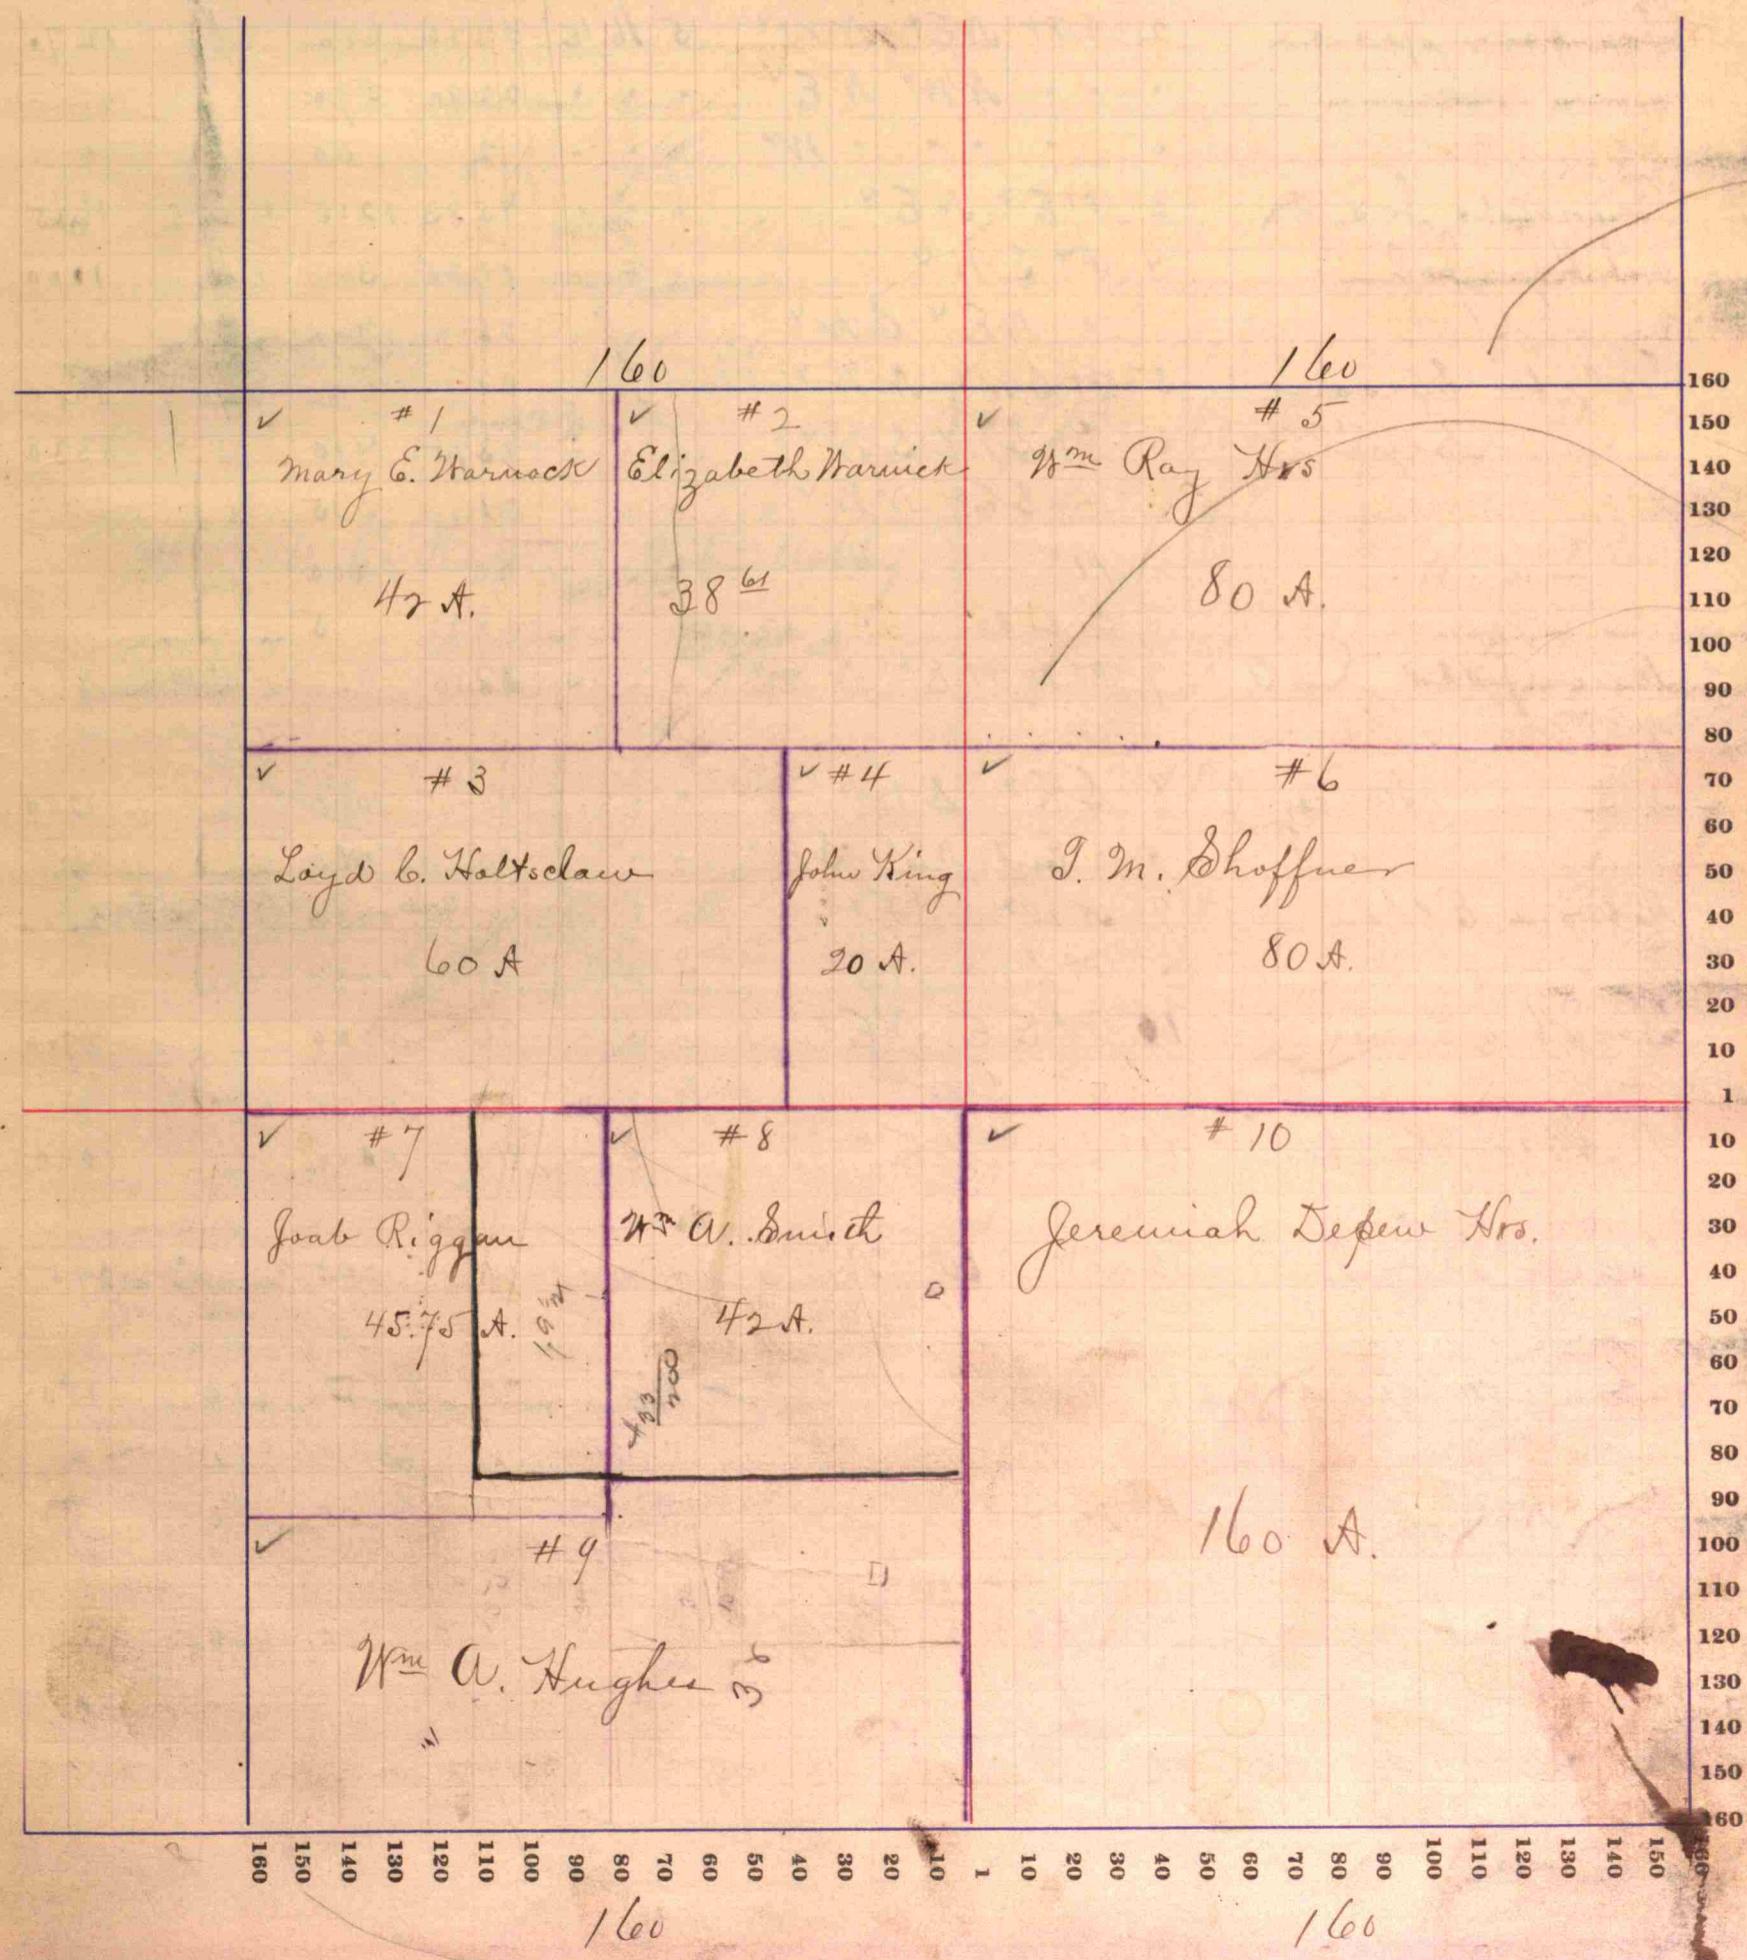 160 160
✓ # 1
Mary E. Warnock
42 A.
✓ # 2
Elizabeth Warnick
38 61
✓ # 5
Wm Ray Hrs
80 A.
✓ # 3
Loyd C. Holtsclaw
60 A
✓ # 4
John King
20 A.
✓ # 6
T. M. Shoffner
80 A.
✓ # 7
Joab Riggan
45.75 A.
✓ # 8
Wm A. Smith
42 A.
33
200
✓ # 10
Jeremiah Depew Hrs.
160 A.
✓ # 9
Wm A. Hughes
36
160
150
140
130
120
110
100
90
80
70
60
50
40
30
20
10
1
10
20
30
40
50
60
70
80
90
100
110
120
130
140
150
160
160 150 140 130 120 110 100 90 80 70 60 50 40 30 20 10 1 10 20 30 40 50 60 70 80 90 100 110 120 130 140 150 160
160 160